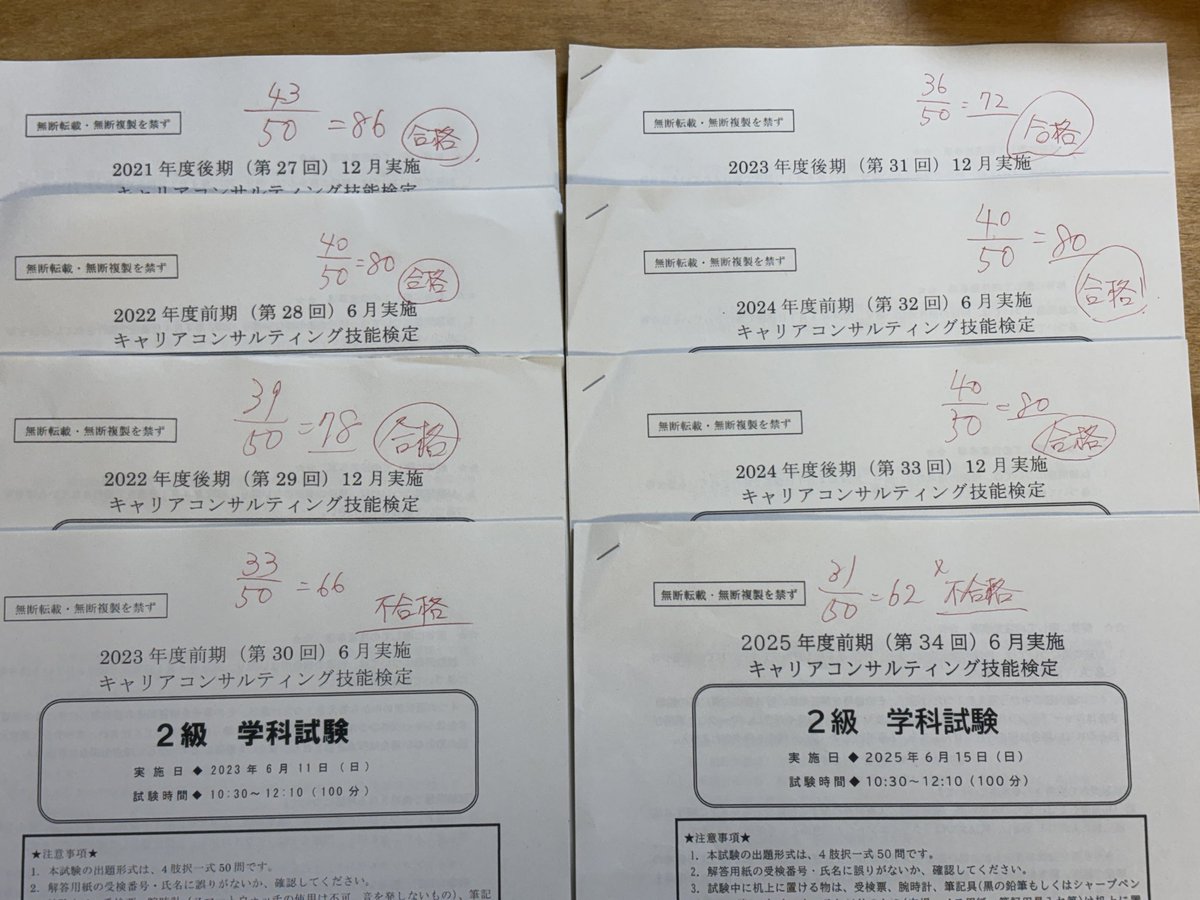 43
50 =86 合格
無断転載・無断複製を禁ず
2021年度後期（第27回）12月実施
キャリアコンサルティング技能検定
40
50 =80 合格
無断転載・無断複製を禁ず
2022年度前期（第28回）6月実施
キャリアコンサルティング技能検定
39
50 =78 合格
無断転載・無断複製を禁ず
2022年度後期（第29回）12月実施
キャリアコンサルティング技能検定
33
50 =66 不合格
無断転載・無断複製を禁ず
2023年度前期（第30回）6月実施
キャリアコンサルティング技能検定
2級 学科試験
実施日◆2023年6月11日（日）
試験時間◆10:30～12:10（100分）
★注意事項★
1. 本試験の出題形式は、4肢択一式50問です。
2. 解答用紙の受検番号・氏名に誤りがないか、確認してください。
36
50 =72 合格
無断転載・無断複製を禁ず
2023年度後期（第31回）12月実施
40
50 =80 合格!
無断転載・無断複製を禁ず
2024年度前期（第32回）6月実施
キャリアコンサルティング技能検定
40
50 =80 合格
無断転載・無断複製を禁ず
2024年度後期（第33回）12月実施
キャリアコンサルティング技能検定
31
50 =62 不合格
無断転載・無断複製を禁ず
2025年度前期（第34回）6月実施
キャリアコンサルティング技能検定
2級 学科試験
実施日◆2025年6月15日（日）
試験時間◆10:30～12:10（100分）
★注意事項★
1. 本試験の出題形式は、4肢択一式50問です。
2. 解答用紙の受検番号・氏名に誤りがないか、確認してください。
3. 試験中に机上に置ける物は、受検票、腕時計、筆記具(黒の鉛筆もしくはシャープペン